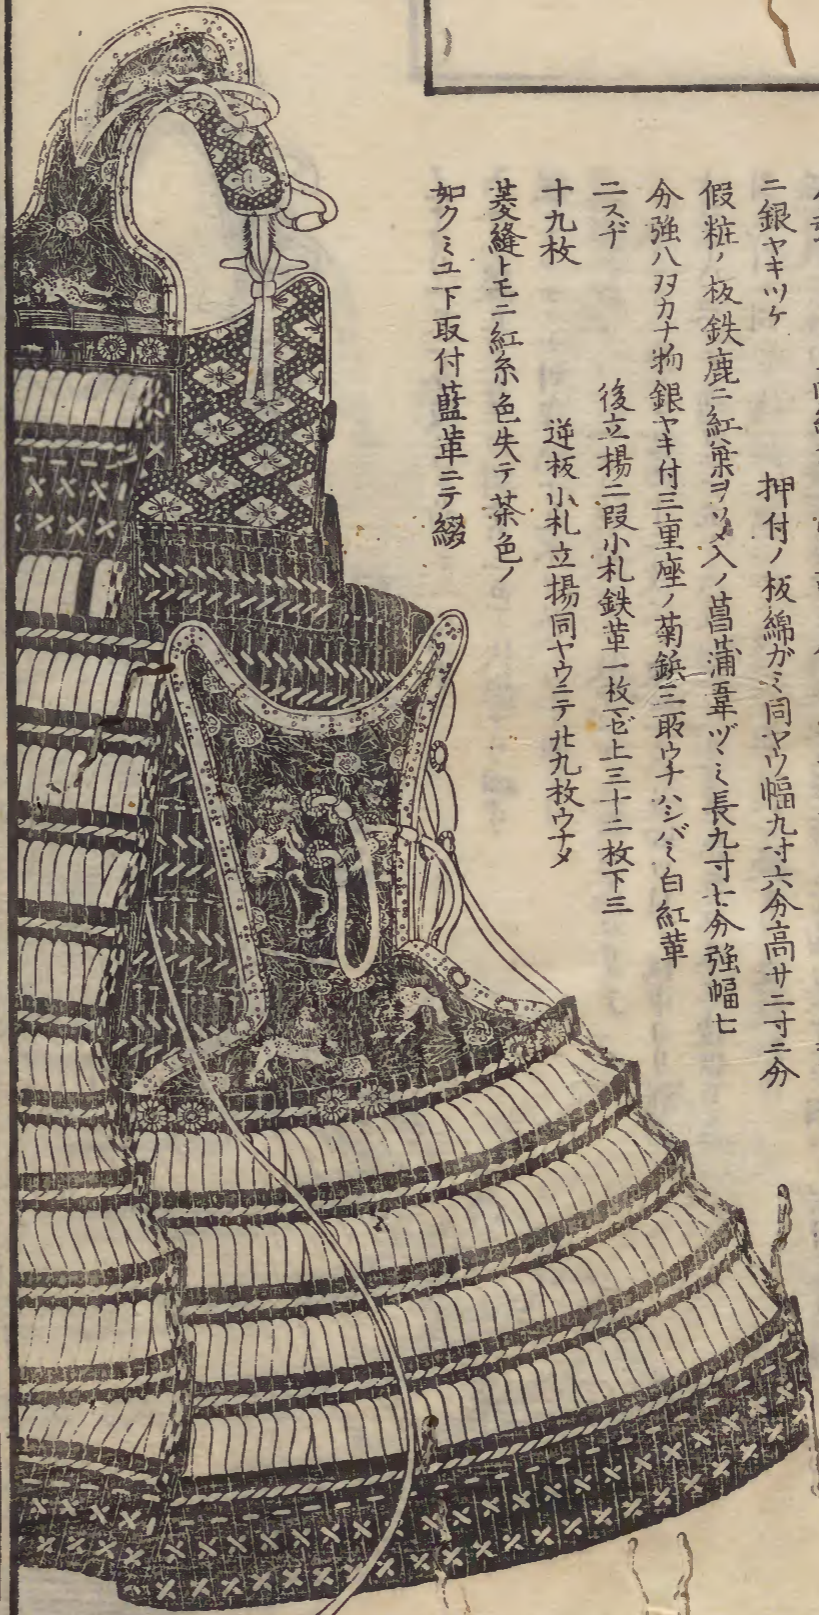 ニ銀ヤキツケ　押付ノ板綿ガミ同ヤウ幅九寸六分高サ二寸二分
假粧ノ板鉄鹿ニ紅葉ヲソメ入ノ菖蒲韋ヅヽミ長九寸七分強幅七
分強八双カナ物銀ヤキ付三重座ノ菊鋲三取ウチハシバミ白紅革
二スヂ　後立揚二段小札鉄革一枚マゼ上三十二枚下三
十九枚　逆板小札立揚同ヤウニテ廿九枚ウチメ
菱縫トモニ紅糸色失テ茶色ノ
如クミユ下取付藍革ニテ綴